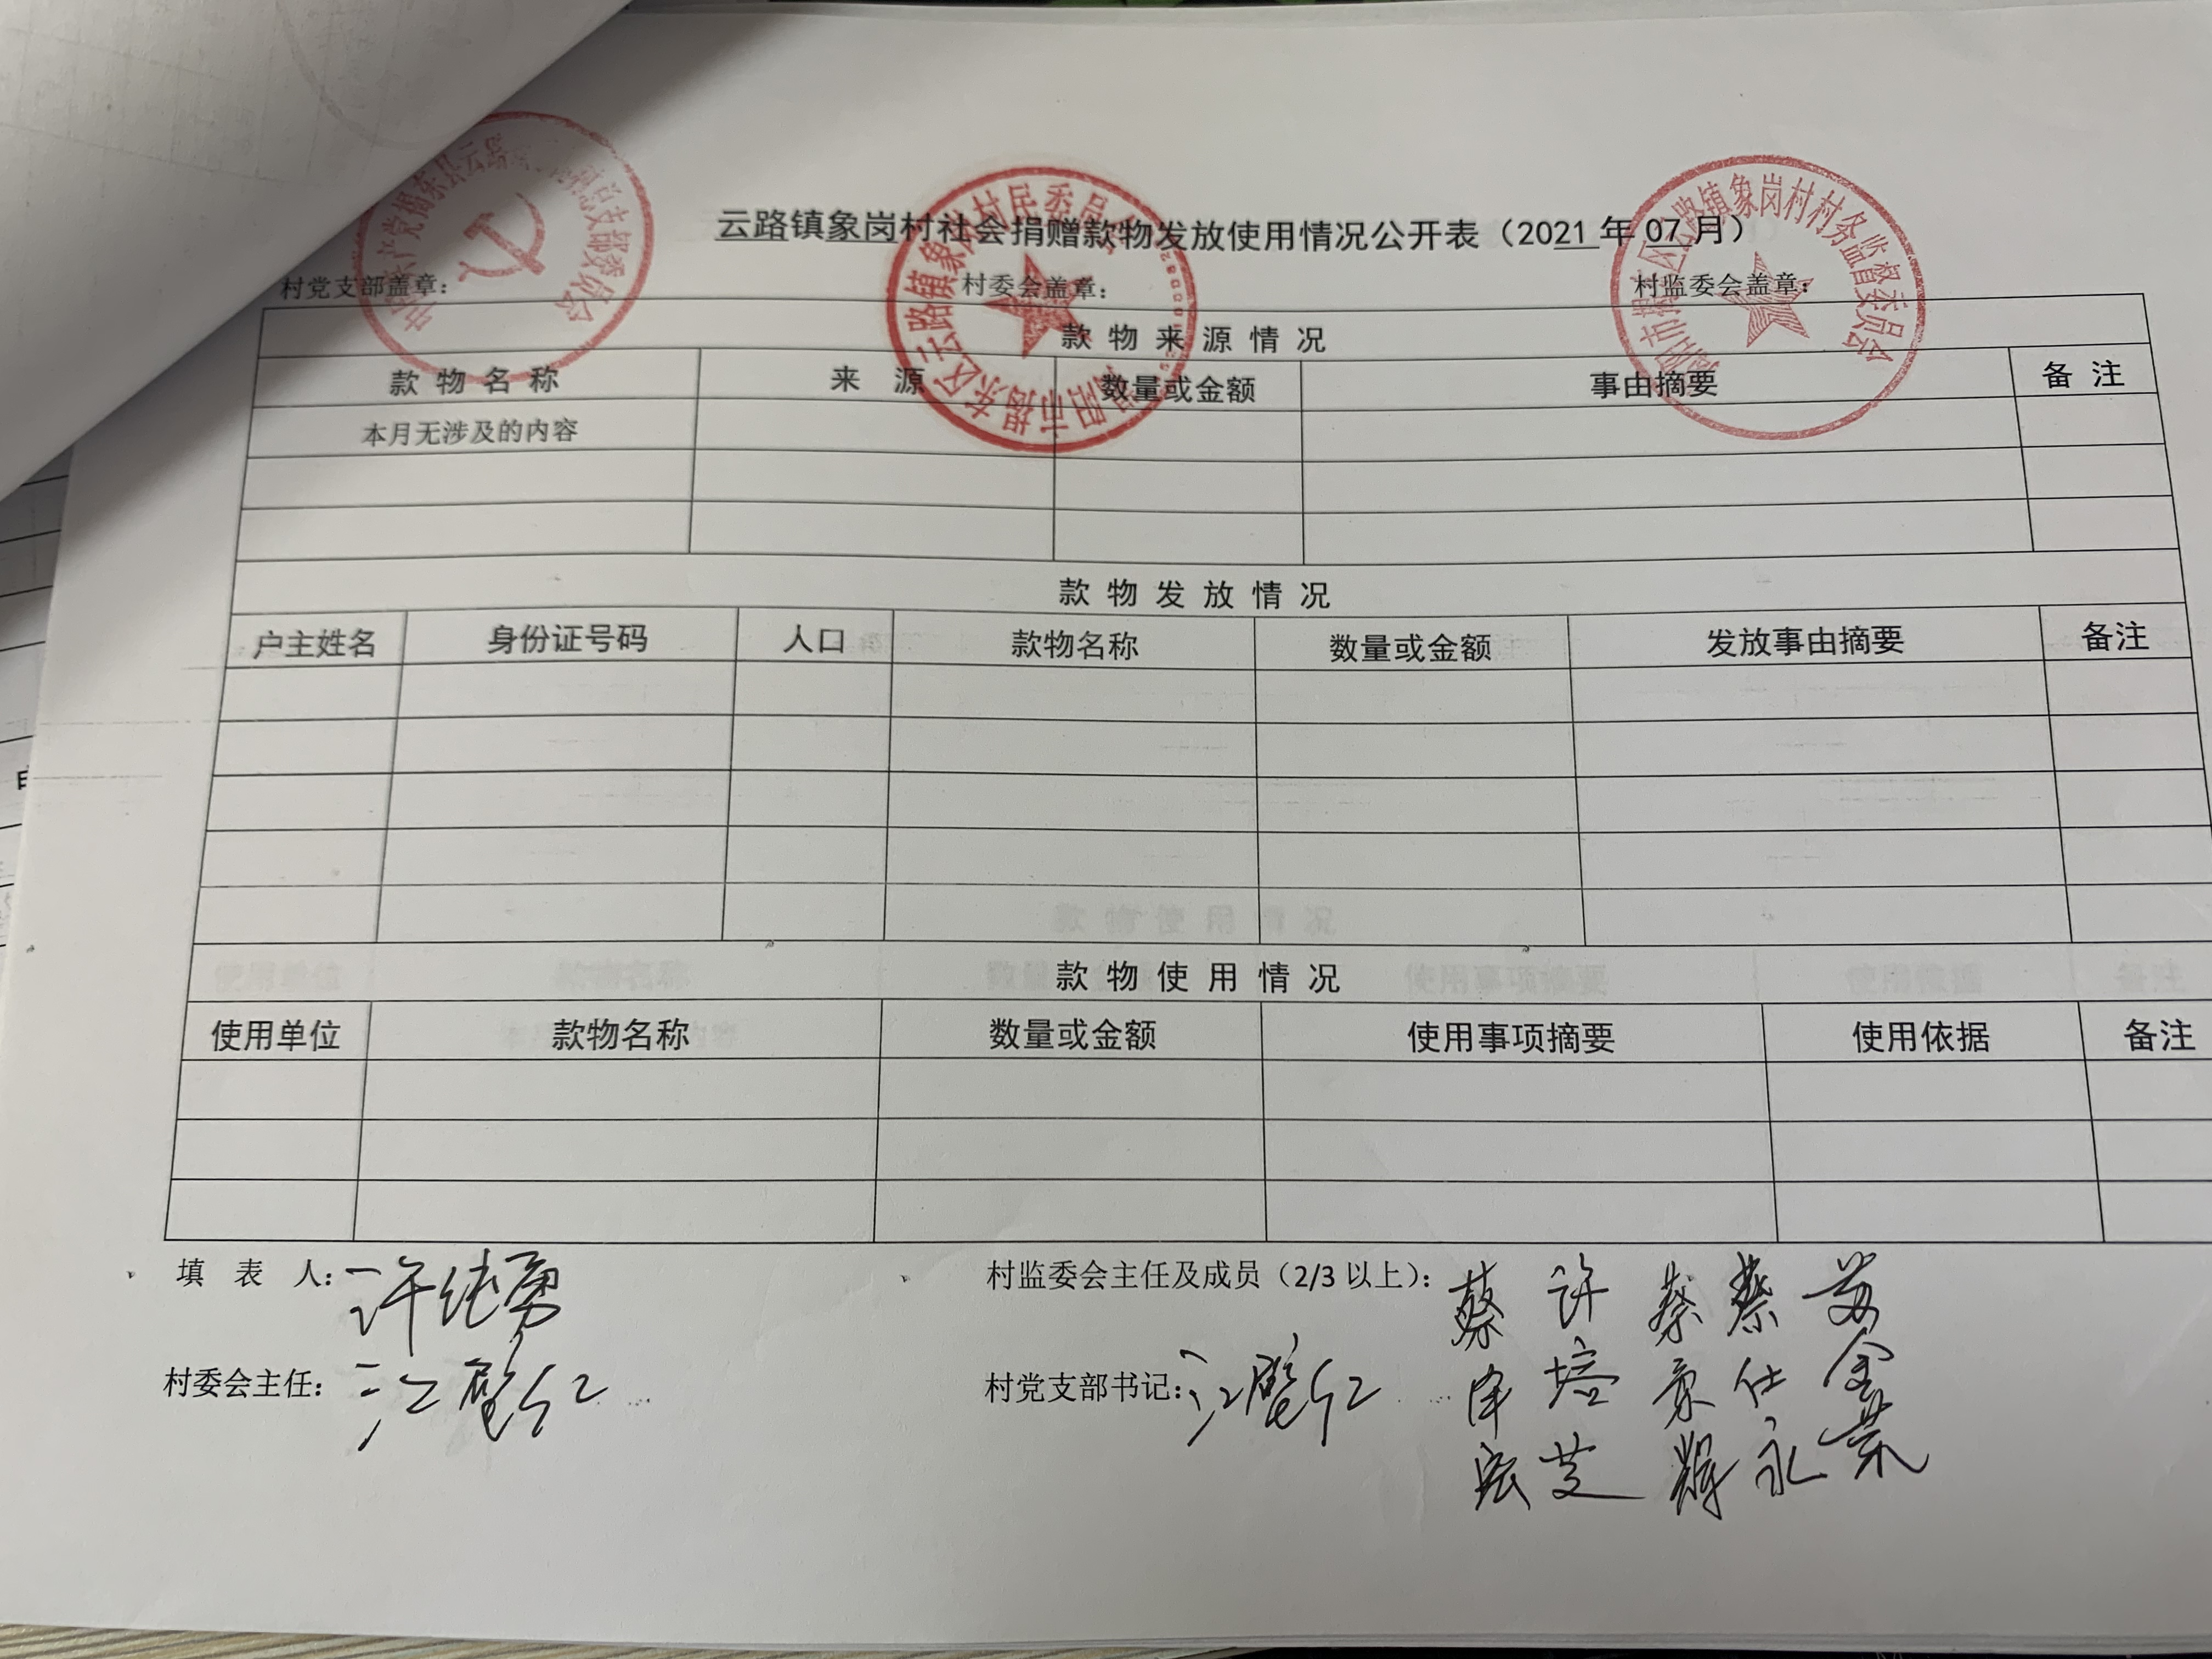 云路镇象岗村社会捐赠款物发放使用情况公开表（2021年07月）
村党支部盖章： 村委会盖章： 村监委会盖章：
款物来源情况
款物名称 来源 数量或金额 事由摘要 备注
本月无涉及的内容
款物发放情况
户主姓名 身份证号码 人口 款物名称 数量或金额 发放事由摘要 备注
款物使用情况
使用单位 款物名称 数量或金额 使用事项摘要 使用依据 备注
填表人：许纯勇 村监委会主任及成员（2/3以上）：蔡 许 蔡 蔡 苏
村委会主任：江 村党支部书记：江
培 仕 金
芝 辉 永 荣